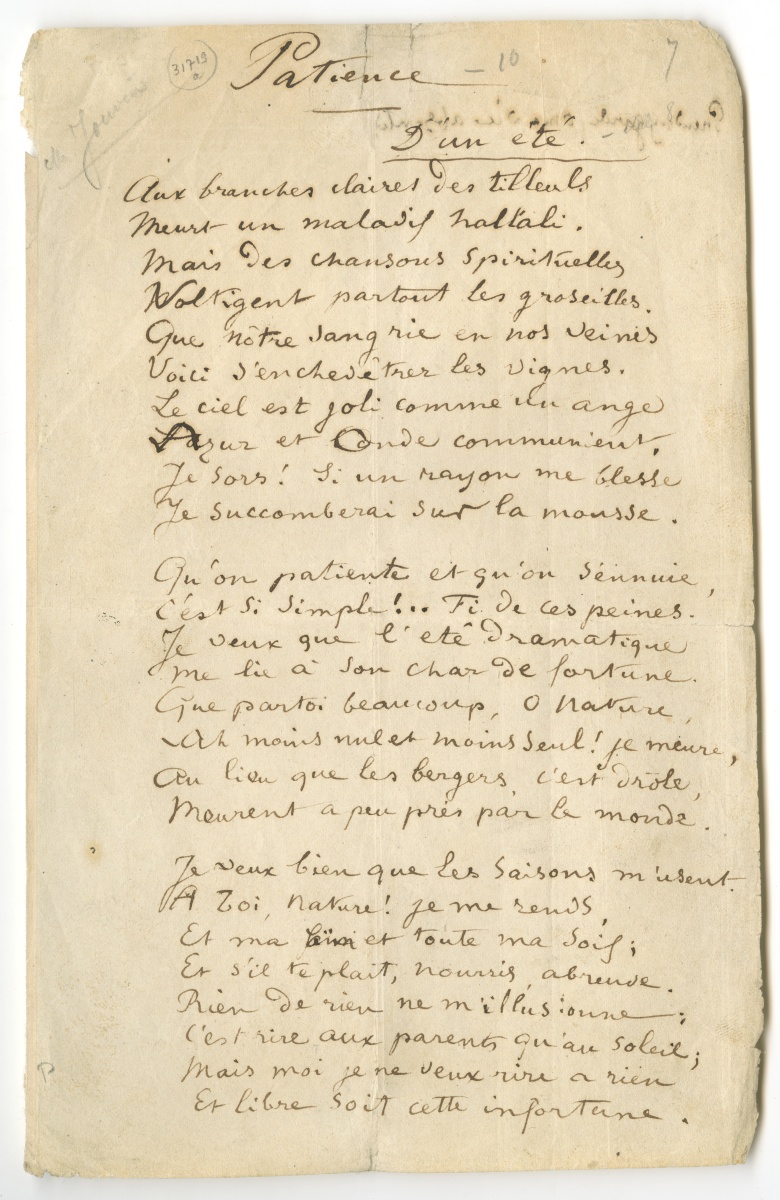 31719
a
Patience
10
7
D'un été.
Aux branches claires des tilleuls
Meurt un maladif hallali.
Mais des chansons spirituelles
Voltigent partout les groseilles.
Que nôtre sang rie en nos veines
Voici s'enchevêtrer les vignes.
Le ciel est joli comme un ange
Azur et Onde communient,
Je sors! Si un rayon me blesse
Je succomberai sur la mousse.
Qu'on patiente et qu'on s'ennuie,
C'est si simple!.. Fi de ces peines.
Je veux que l'été dramatique
Me lie à son char de fortune.
Que par toi beaucoup, O Nature,
Ah moins nul et moins seul! je meure,
Au lieu que les bergers, c'est drôle,
Meurent a peu près par le monde.
Je veux bien que les saisons m'usent.
A Toi, Nature! je me rends,
Et ma faim et toute ma soif;
Et s'il te plait, nourris, abreuve.
Rien de rien ne m'illusionne;
C'est rire aux parents qu'au soleil;
Mais moi je ne veux rire a rien
Et libre soit cette infortune.